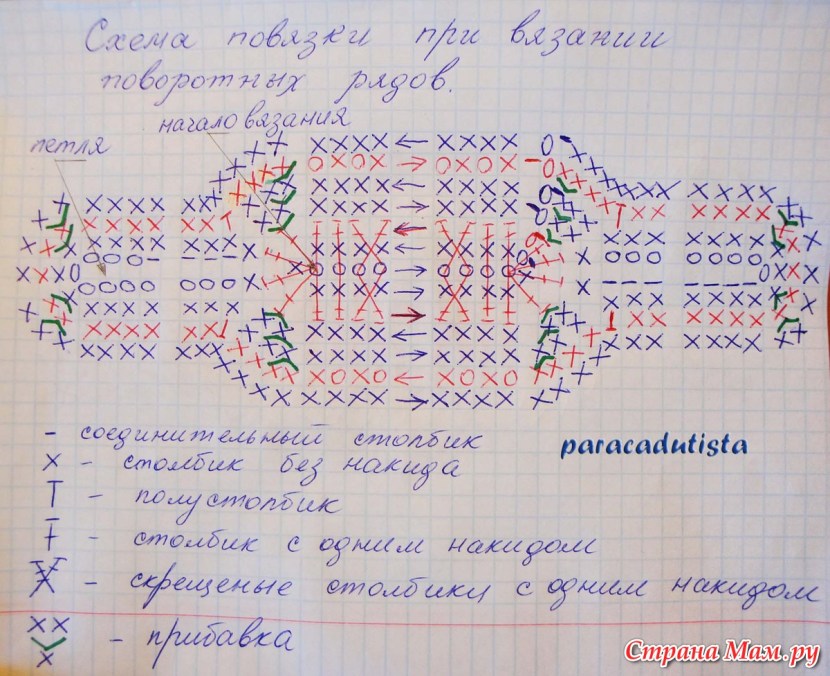 Схема повязки при вязании
поворотных рядов.
начало вязания
петля
- соединительный столбик
paracadutista
x - столбик без накида
- полустолбик
- столбик с одним накидом
- скрещеные столбики с одним накидом
- прибавка
Страна Мам.ру